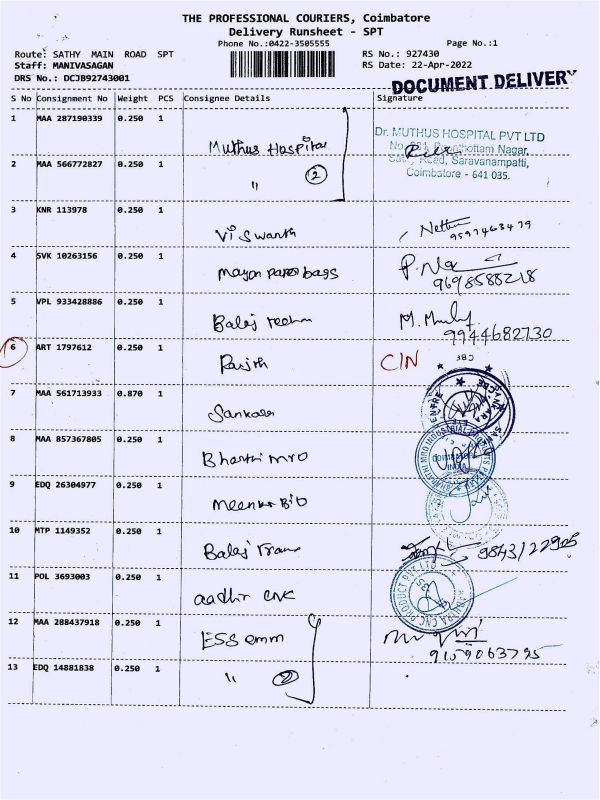 THE PROFESSIONAL COURIERS, Coimbatore
Delivery Runsheet - SPT
Phone No.:0422-3505555
Page No.:1
Route: SATHY MAIN ROAD SPT
RS No.: 927430
Staff: MANIVASAGAN
RS Date: 22-Apr-2022
DRS No.: DCJB92743001
DOCUMENT DELIVERY
S No Consignment No Weight PCS Consignee Details Signature
1 MAA 287190339 0.250 1 Muthus Hospital
Dr. MUTHUS HOSPITAL PVT LTD
Saravanampatti,
Coimbatore - 641 035.
2 MAA 566772827 0.250 1 " 2
3 KNR 113978 0.250 1 Viswanth
4 SVK 10263156 0.250 1 Mayon paper bags
9698588218
5 VPL 933428886 0.250 1 Balaj
9944682730
6 ART 1797612 0.250 1 CIN
7 MAA 561713933 0.870 1
8 MAA 857367805 0.250 1 Bharthi MRO
9 EDQ 26304977 0.250 1
10 MTP 1149352 0.250 1 Balaj Trans
11 POL 3693003 0.250 1 aadhir CNC
12 MAA 288437918 0.250 1 ESS emm
9159063795
13 EDQ 14881838 0.250 1 " 2